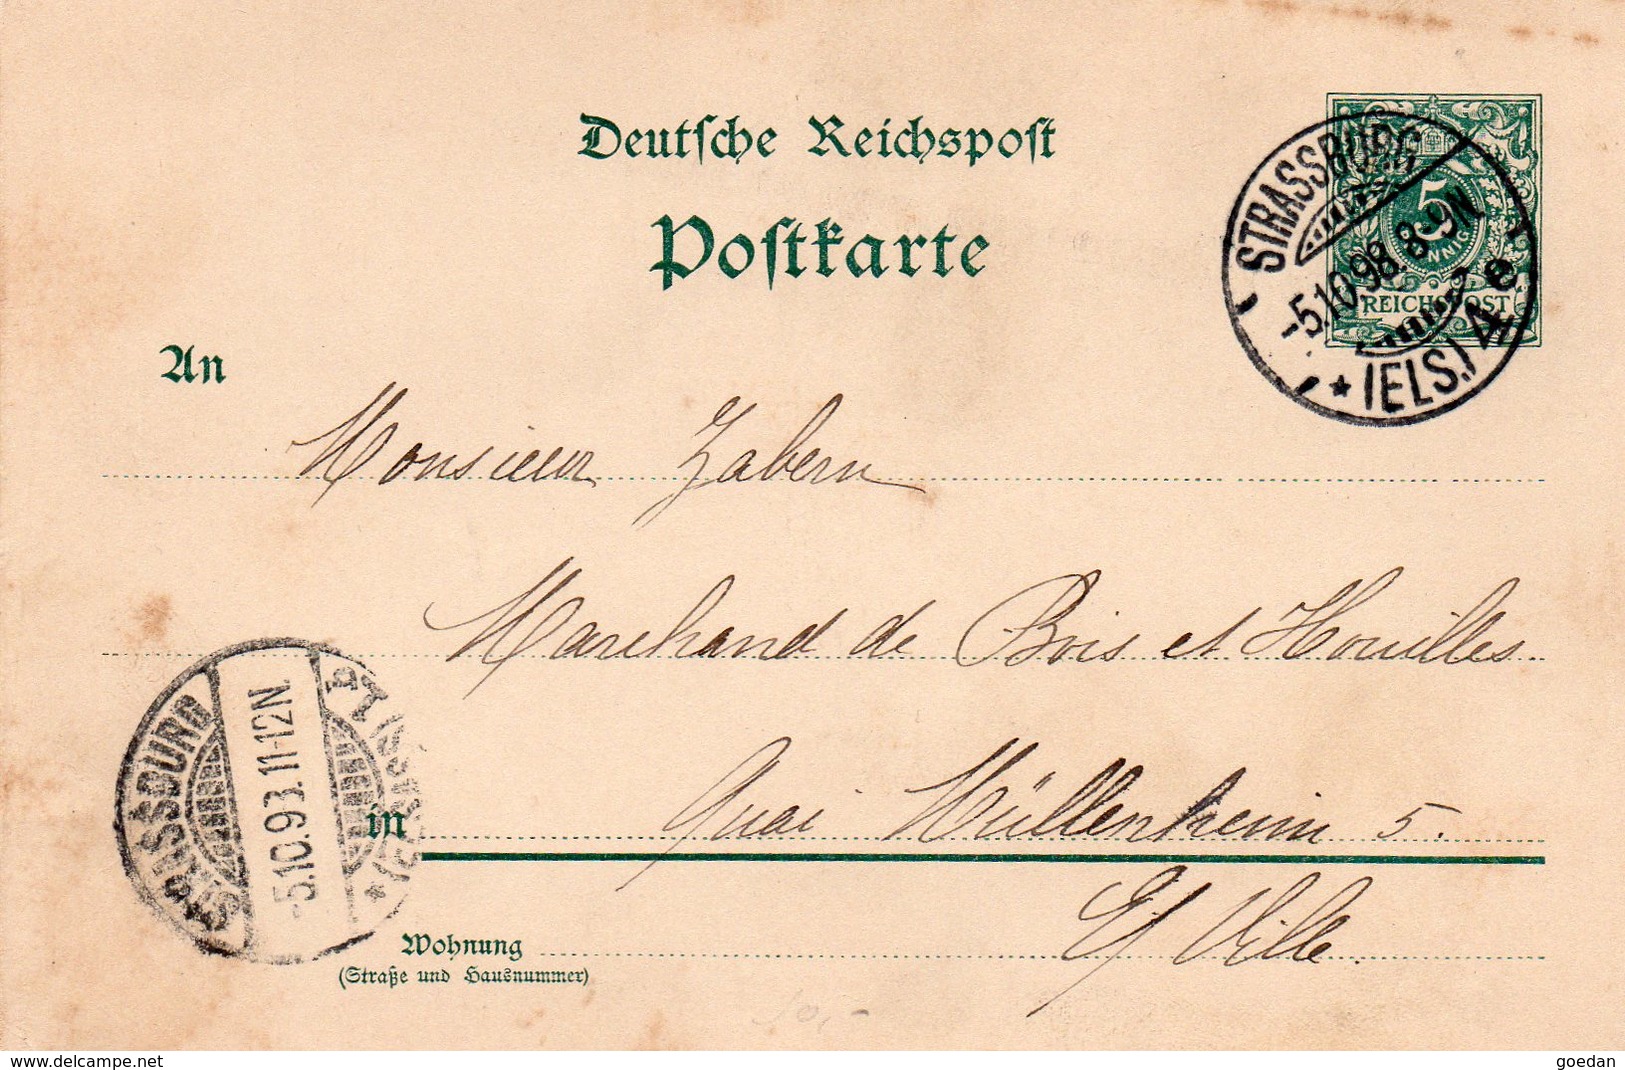 Deutsche Reichspost
Postkarte
5
PFENNIG
REICHSPOST
STRASSBURG
-5.10.98. 8-9N
* (ELS.) 4 e
An
Monsieur Zabern
Marchand de Bois et Houilles
in Quai Müllenheim 5.
E/ Ville.
STRASSBURG
-5.10.93. 11-12N.
Wohnung
(Straße und Hausnummer)
10,-
delcampe.net
goedan